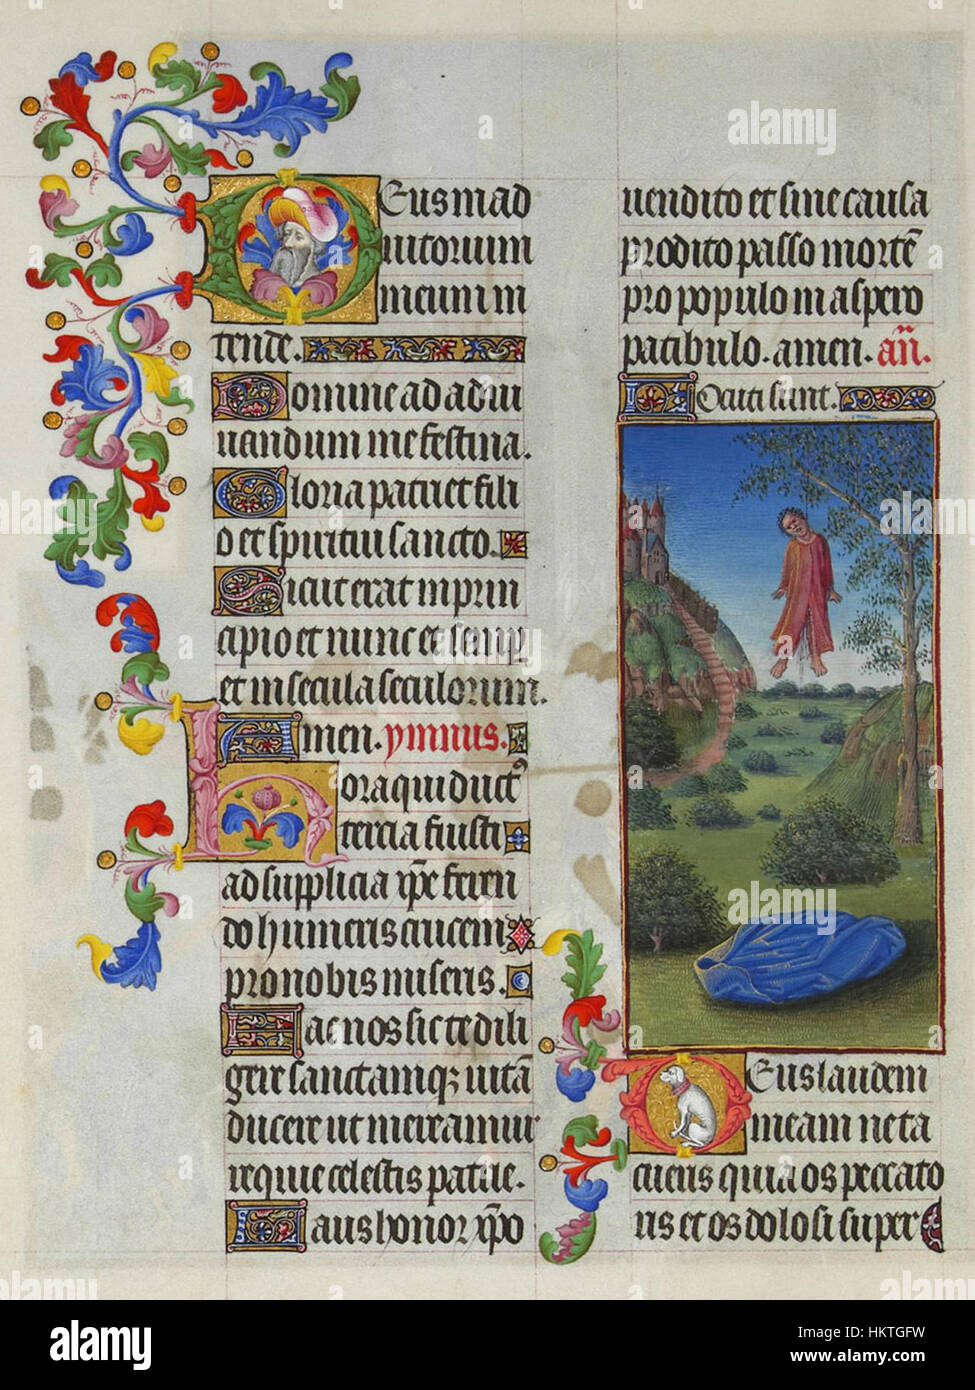 Deus in ad
iutorium
meum in
tende.
Domine ad adiu
uandum me festina.
Gloria patri et fili
o et spiritui sancto.
Sicut erat in prin
cipio et nunc et semp̲
et in secula seculorum.
Amen. ymnus.
Hora qui ductꝰ
tercia fuisti
ad supplicia xp̄e feren
do humeris crucem
pro nobis miseris.
Fac nos sic te dili
gere sanctamqꝫ uitā
ducere ut mereamur
requie celestis patrie.
Laus honor xp̄o
uendito et sine causa
prodito passo mortē
pro populo in aspero
patibulo. amen. añ.
sunt.
Deus laudem
meam ne ta
cueris quia os peccato
ris et os dolosi super
alamy
a
a
alamy
a
a
alamy
a
a
alamy
alamy
Image ID: HKTGFW
www.alamy.com